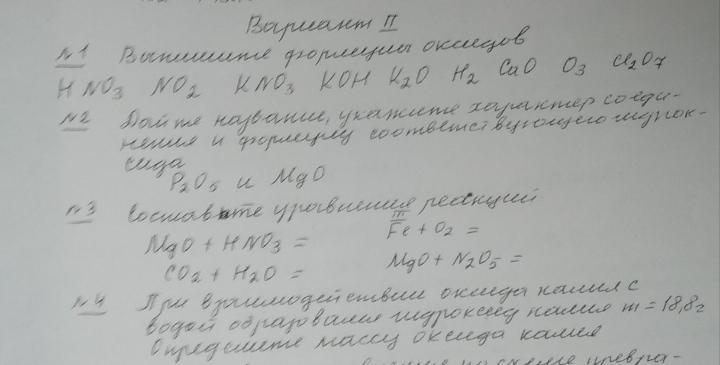 Вариант II
№1 Выпишите формулы оксидов
HNO3 NO2 KNO3 KOH K2O H2 CaO O3 Cl2O7
№2 Дайте название, укажите характер соеди-
нения и формулу соответствующего гидрок-
сида
P2O5 и MgO
№3 Составьте уравнения реакций
MgO + HNO3 = III Fe + O2 =
CO2 + H2O = MgO + N2O5 =
№4 При взаимодействии оксида калия с
водой образовался гидроксид калия m = 18,8г
Определите массу оксида калия
по схеме превра-